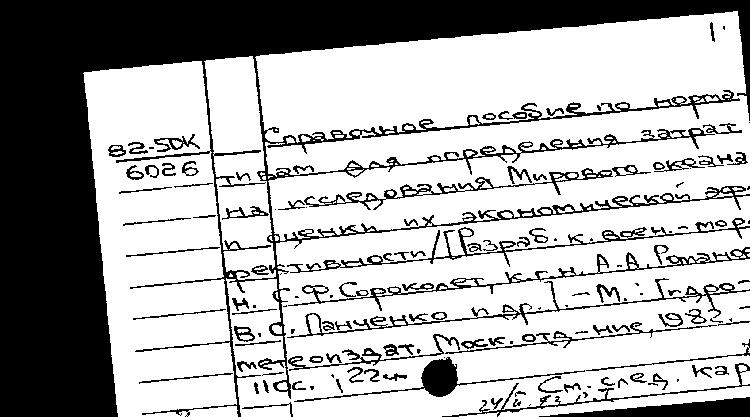 1.
82-5DK
6026
Справочное пособие по норма-
тивам для определения затрат
на исследования Мирового океана
и оценки их экономической эф-
фективности/[Разраб. к. воен.-мор.
н. С.Ф. Сороколет, к.г.н. А.А. Романов
В.С. Панченко и др.]. - М.: Гидро-
метеоиздат. Моск. отд-ние, 1982. -
110с.; 22см
См. след. кар